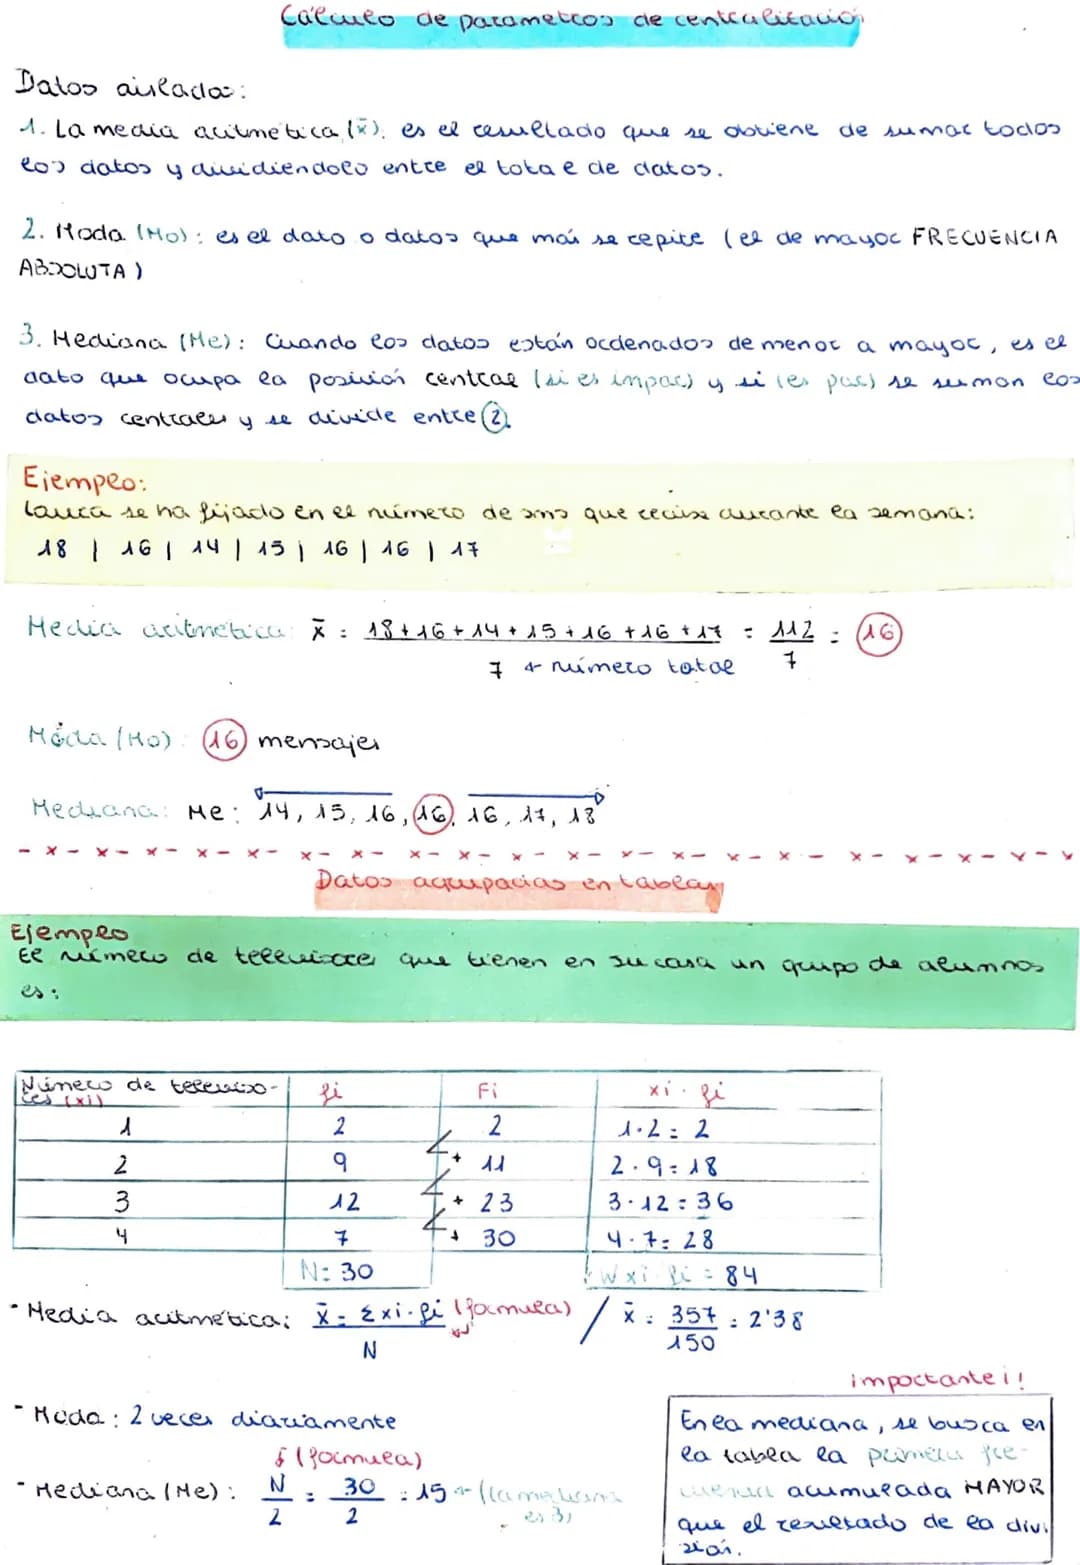 Cálculo de parametros de centralitación
Datos aislados:
1. La media aritmética (x̄): es el resultado que se obtiene de sumar todos
los datos y dividiendolo entre el total de datos.
2. Moda (Mo): es el dato o datos que más se repite (el de mayor FRECUENCIA
ABSOLUTA)
3. Mediana (Me): Cuando los datos están ordenados de menor a mayor, es el
dato que ocupa la posición central (si es impar) y si (es par) se suman los
datos centrales y se divide entre 2.
Ejemplo:
Laura se ha fijado en el número de sms que recibe durante la semana:
18 | 16 | 14 | 15 | 16 | 16 | 17
Media aritmética: x̄ = 18+16+14+15+16+16+17 = 112 = 16
7 ← número total 7
Moda (Mo): 16 mensajes
Mediana: Me: 14, 15, 16, 16, 16, 17, 18
Datos agrupados en tablas
Ejemplo
El número de televisores que tienen en su casa un grupo de alumnos
es:
Número de televiso- fi Fi xi · fi
res (xi)
1 2 2 1·2 = 2
2 9 + 11 2·9 = 18
3 12 + 23 3·12 = 36
4 7 + 30 4·7 = 28
N = 30 xi · fi = 84
- Media aritmética: x̄ = Σxi·fi (formula) / x̄ = 357 = 2'38
N 150
importante¡!
- Moda: 2 veces diariamente
En la mediana, se busca en
↓ (formula)
la tabla la primera fre-
- Mediana (Me): N = 30 = 15 ← (la mediana
cuencia acumulada MAYOR
2 2 es 3)
que el resultado de la divi
sión.